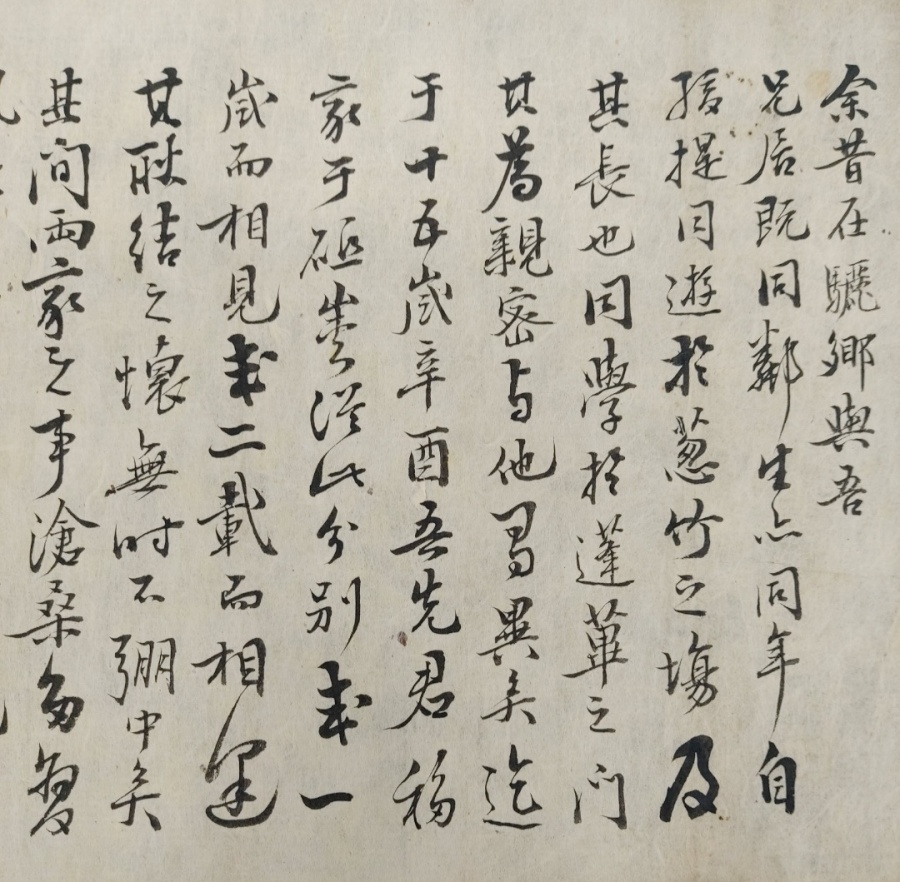 余昔在驪鄉與吾
兄居既同鄰生亦同年自
孩提同遊於蔥竹之場及
其長也同學於蓬蓽之門
其為親密與他曷異矣迄
于十五歲辛酉吾先君移
家于砥峯從此分別或一
歲而相見或二載而相逢
其耿結之懷無時不弸中矣
其間兩家之事滄桑多變